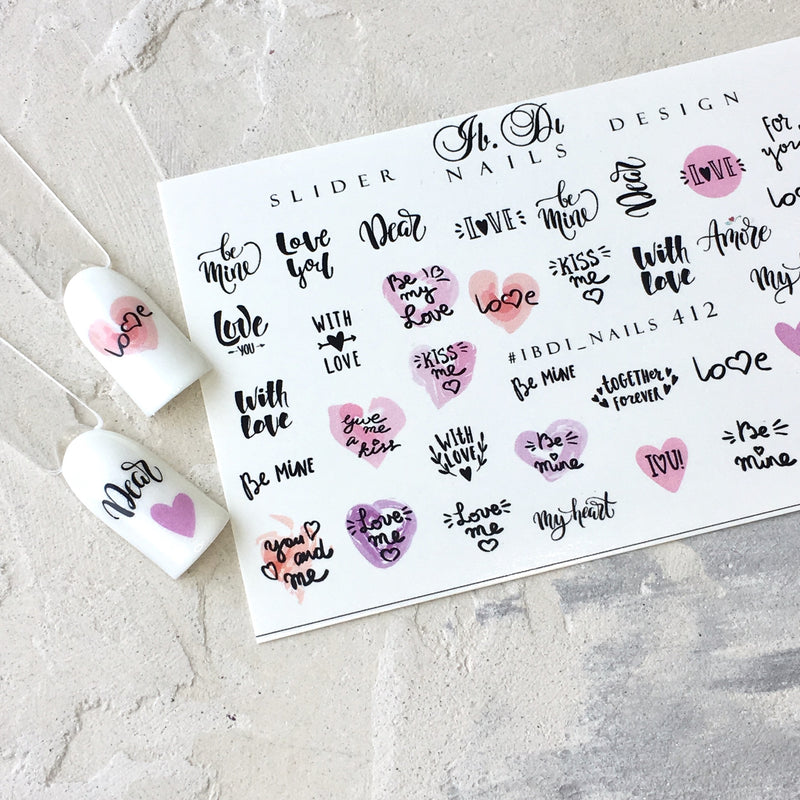 Ib. Di
SLIDER NAILS DESIGN
be
Mine
Love
you
Dear
LOVE
be
Mine
Dear
LOVE
FOR
you
Love
YOU
WITH
LOVE
Be
my
Love
Love
KISS
me
With
love
Amore
My
Love
With
love
give
me
a
kiss
KISS
me
#IBDI_NAILS 412
Be MINE
TOGETHER
FOREVER
Love
Be MINE
With
LOVE
Be
mine
I U!
Be
mine
you
and
me
Love
me
Love
me
My heart
Love
Dear